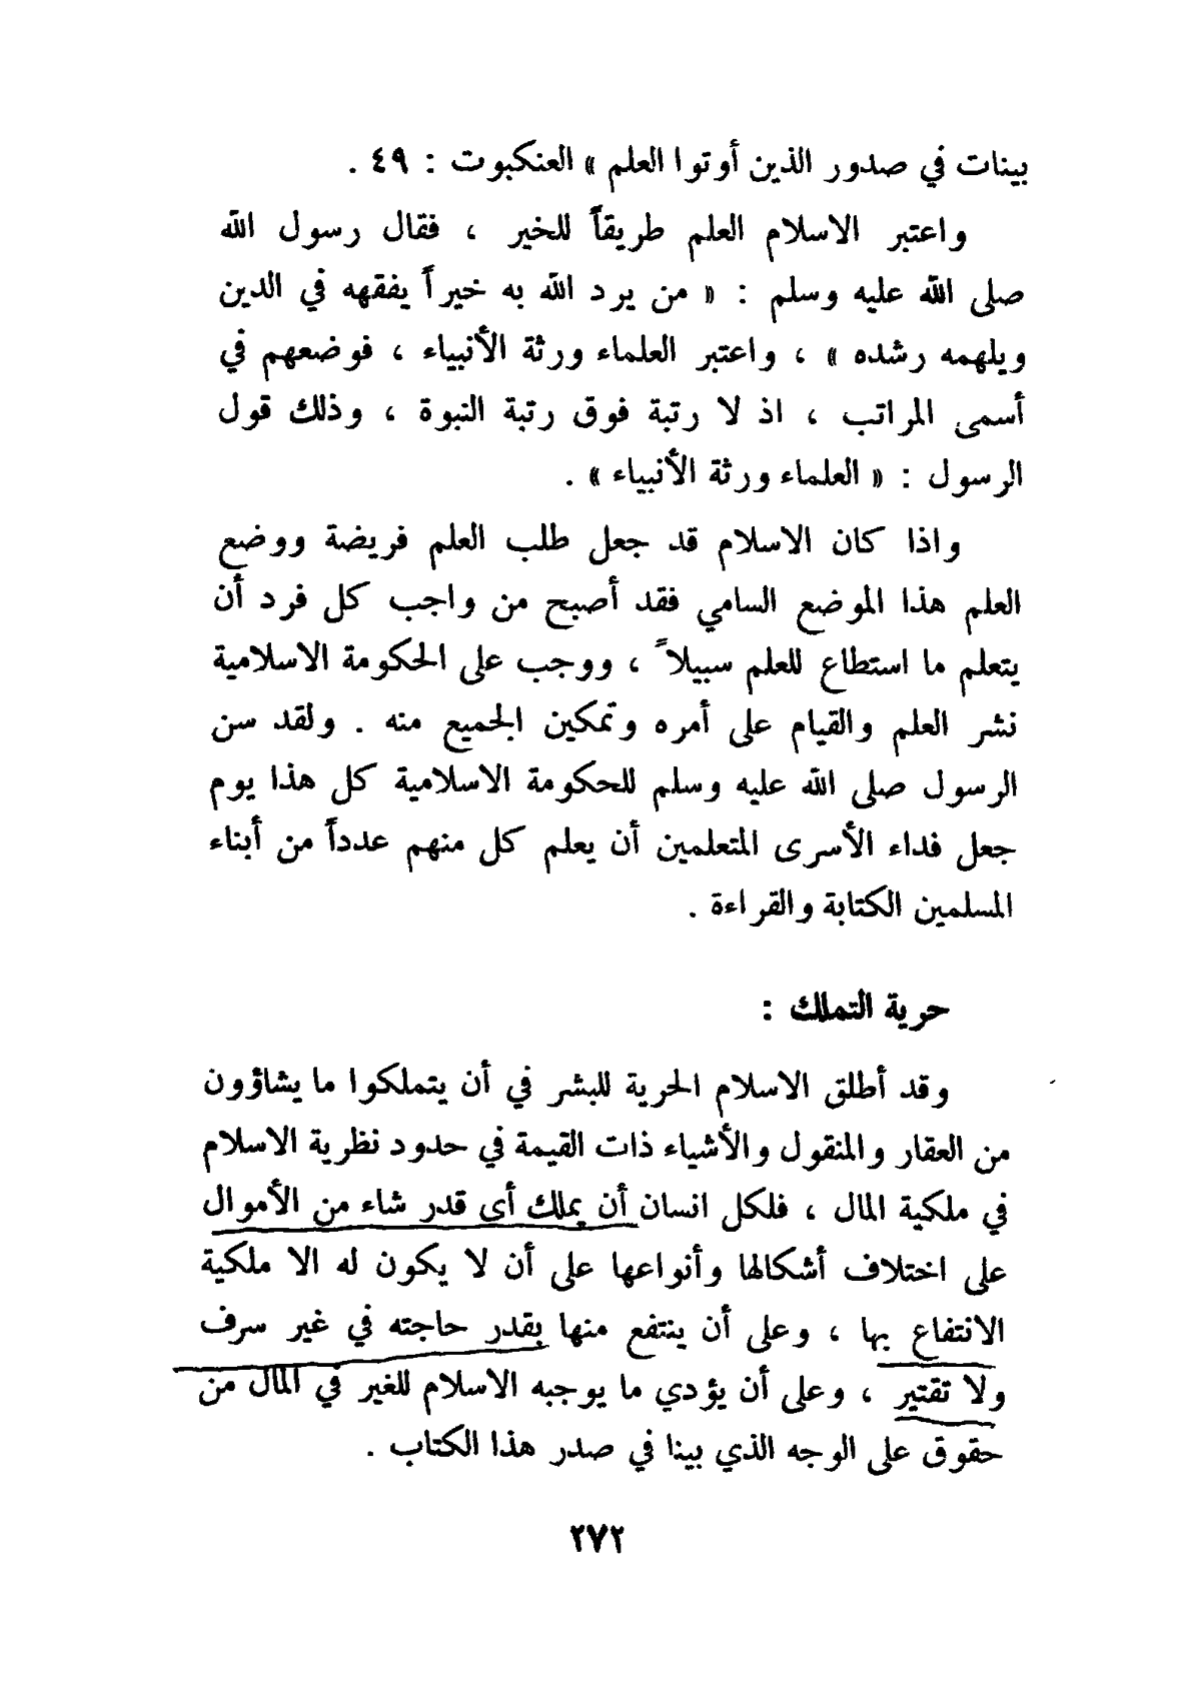 بينات في صدور الذين أوتوا العلم » العنكبوت : ٤٩ .
واعتبر الاسلام العلم طريقاً للخير ، فقال رسول الله
صلى الله عليه وسلم : « من يرد الله به خيراً يفقهه في الدين
ويلهمه رشده » ، واعتبر العلماء ورثة الأنبياء ، فوضعهم في
أسمى المراتب ، اذ لا رتبة فوق رتبة النبوة ، وذلك قول
الرسول : « العلماء ورثة الأنبياء » .
واذا كان الاسلام قد جعل طلب العلم فريضة ووضع
العلم هذا الموضع السامي فقد أصبح من واجب كل فرد أن
يتعلم ما استطاع للعلم سبيلاً ، ووجب على الحكومة الاسلامية
نشر العلم والقيام على أمره وتمكين الجميع منه . ولقد سن
الرسول صلى الله عليه وسلم للحكومة الاسلامية كل هذا يوم
جعل فداء الأسرى المتعلمين أن يعلم كل منهم عدداً من أبناء
المسلمين الكتابة والقراءة .
حرية التملك :
وقد أطلق الاسلام الحرية للبشر في أن يتملكوا ما يشاؤون
من العقار والمنقول والأشياء ذات القيمة في حدود نظرية الاسلام
في ملكية المال ، فلكل انسان أن يملك أى قدر شاء من الأموال
على اختلاف أشكالها وأنواعها على أن لا يكون له الا ملكية
الانتفاع بها ، وعلى أن ينتفع منها بقدر حاجته في غير سرف
ولا تقتير ، وعلى أن يؤدي ما يوجبه الاسلام للغير في المال من
حقوق على الوجه الذي بينا في صدر هذا الكتاب .
٢٧٢